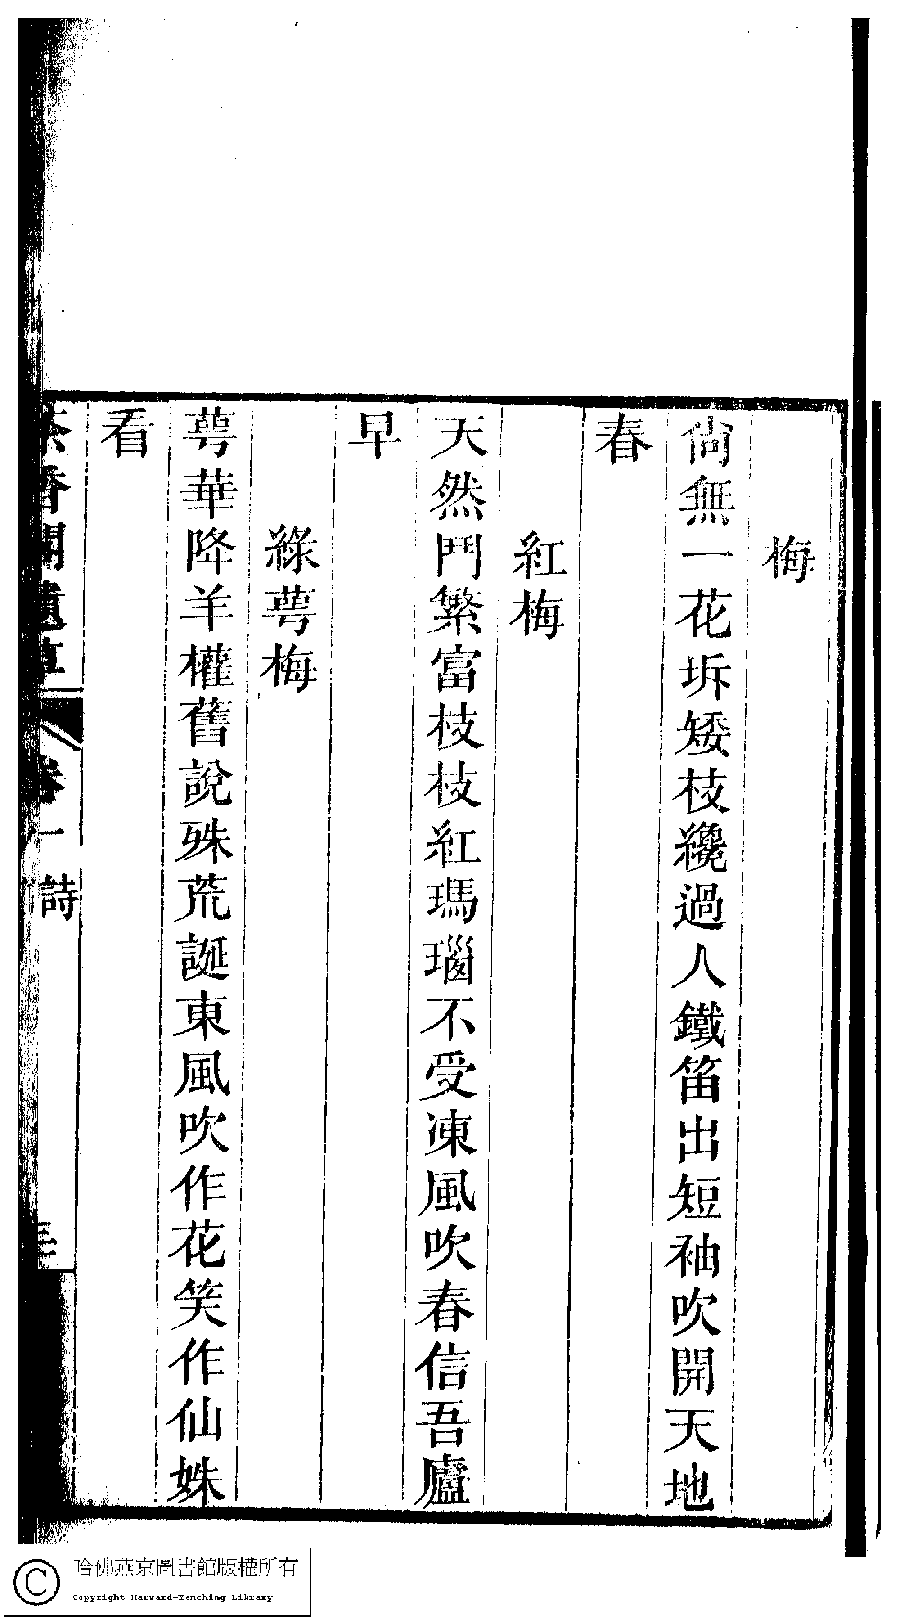 梅
尙無一花坼矮枝纔過人鐵笛出短袖吹開天地
春
紅梅
天然鬥繁富枝枝紅瑪瑙不受凍風吹春信吾廬
早
綠萼梅
萼華降羊權舊說殊荒誕東風吹作花笑作仙姝
看
香
卷一
詩
哈佛燕京圖書館版權所有
Copyright Harvard-Yenching Library